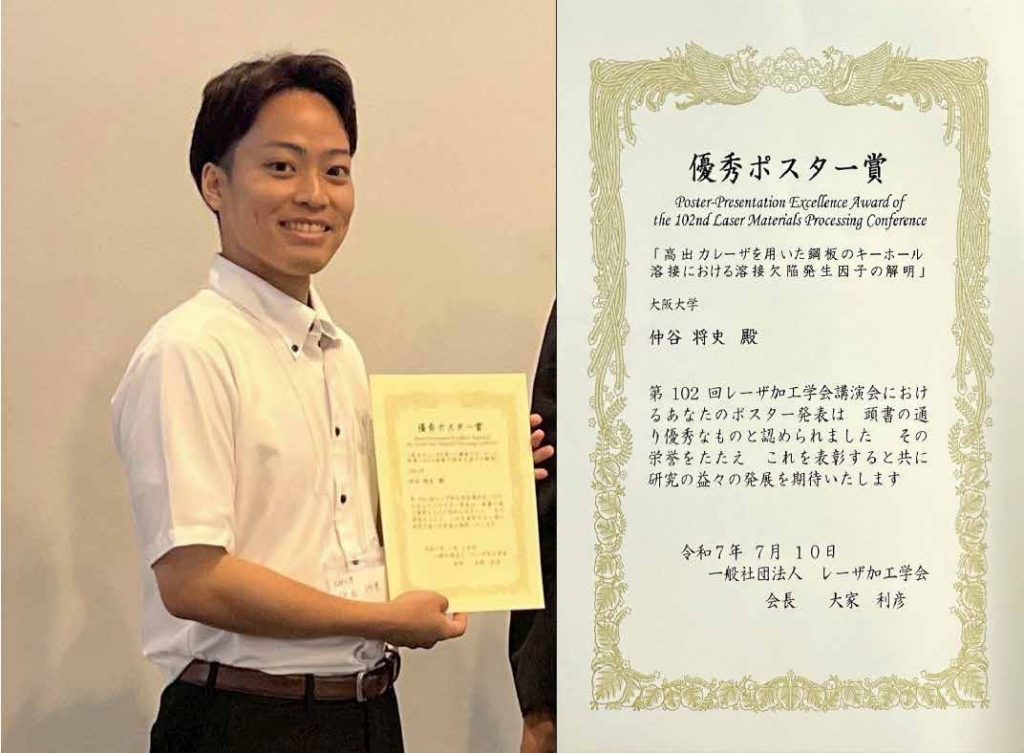 優秀ポスター賞
優秀ポスター賞
Poster-Presentation Excellence Award of
the 102nd Laser Materials Processing Conference
「高出力レーザを用いた鋼板のキーホール
溶接における溶接欠陥発生因子の解明」
大阪大学
仲谷 将史 殿
第 102 回レーザ加工学会講演会におけ
るあなたのポスター発表は 頭書の通
り優秀なものと認められました その
栄誉をたたえ これを表彰すると共に
研究の益々の発展を期待いたします
令和7年 7月 10日
一般社団法人 レーザ加工学会
会長 大家 利彦